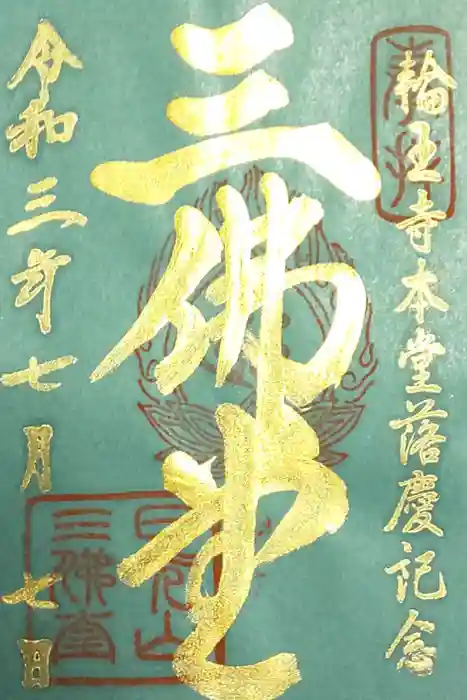 奉拝
輪王寺本堂落慶記念
三佛堂
日光山
三佛堂
令和三年七月七日